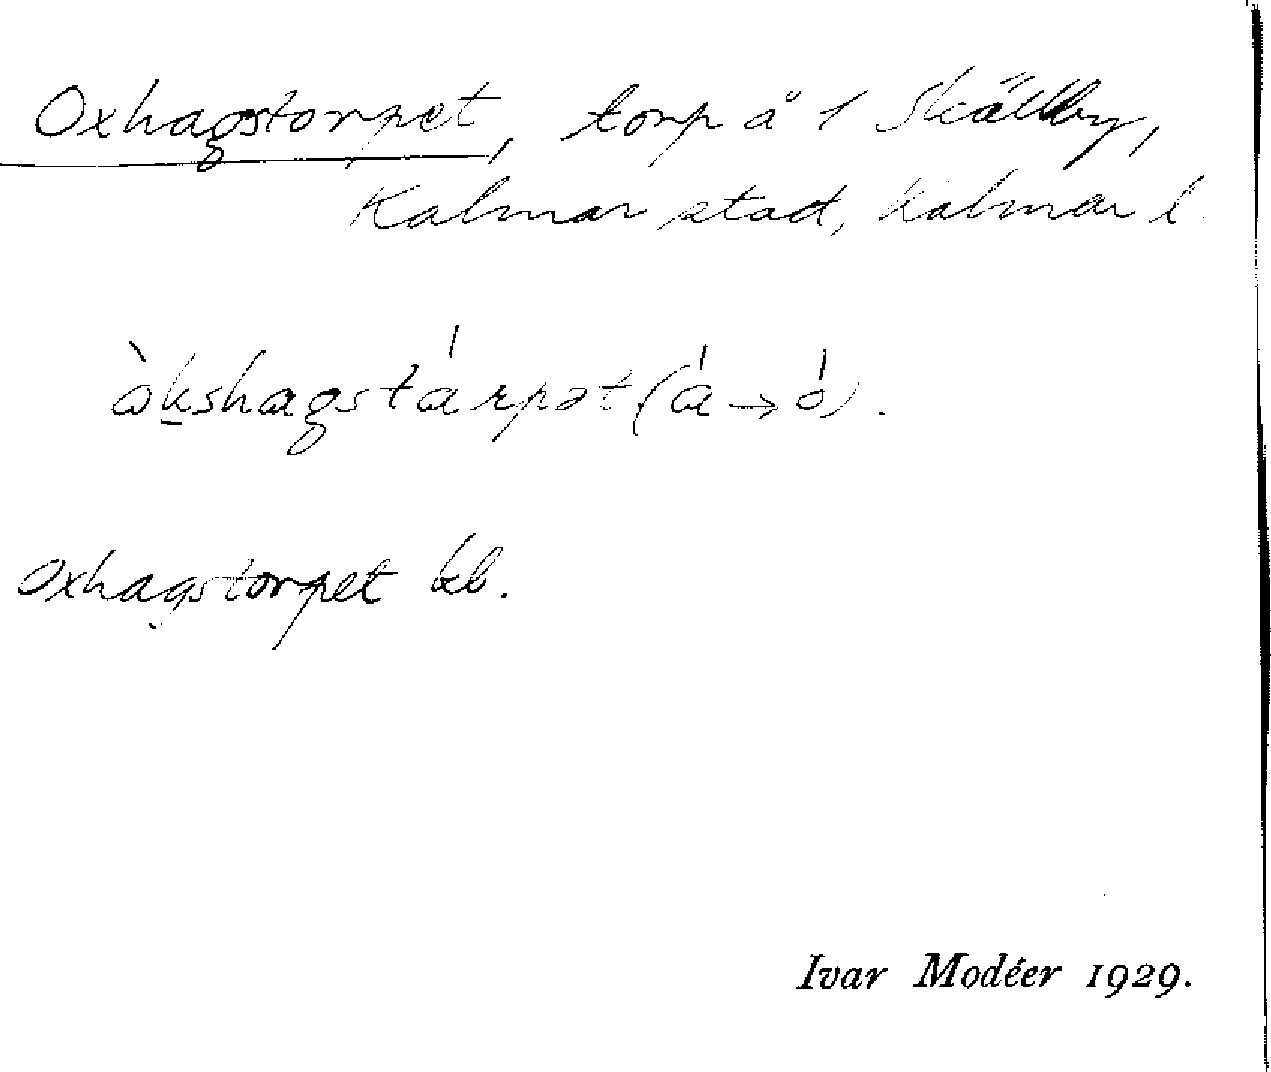 Oxhagstorpet, torp å 1 Skälby,
Kalmar stad, Kalmar l.
òkshagstárpət (á → ó).
Oxhagstorpet kb.
Ivar Modéer 1929.